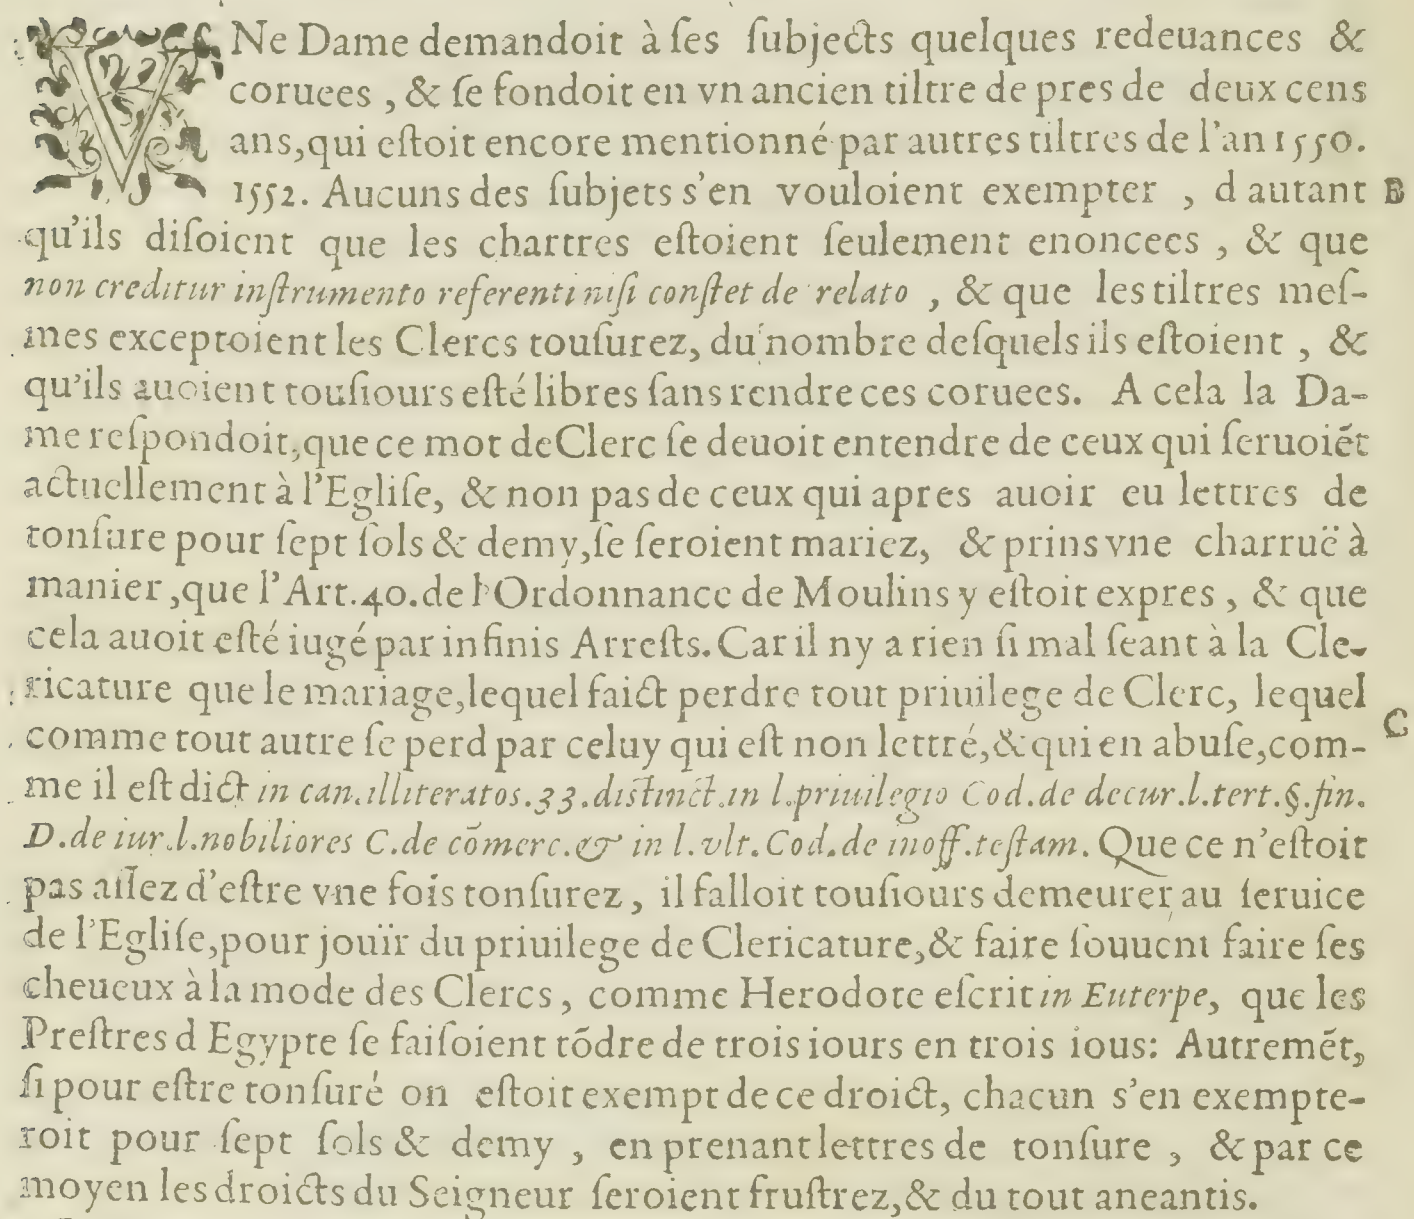 VNe Dame demandoit à ſes ſubjects quelques redeuances &
coruees, & ſe fondoit en vn ancien tiltre de pres de deux cens
ans, qui eſtoit encore mentionné par autres tiltres de l'an 1550.
1552. Aucuns des ſubjets s'en vouloient exempter, d autant B
qu'ils diſoient que les chartres eſtoient ſeulement enoncees, & que
non creditur inſtrumento referenti niſi conſtet de relato, & que les tiltres meſ-
mes exceptoient les Clercs touſurez, du nombre deſquels ils eſtoient, &
qu'ils auoient touſiours eſté libres ſans rendre ces coruees. A cela la Da-
me reſpondoit, que ce mot de Clerc ſe deuoit entendre de ceux qui ſeruoiẽt
actuellement à l'Egliſe, & non pas de ceux qui apres auoir eu lettres de
tonſure pour ſept ſols & demy, ſe ſeroient mariez, & prins vne charruë à
manier, que l'Art. 40. de l'Ordonnance de Moulins y eſtoit expres, & que
cela auoit eſté iugé par infinis Arreſts. Car il ny a rien ſi mal ſeant à la Cle-
ricature que le mariage, lequel faict perdre tout priuilege de Clerc, lequel
comme tout autre ſe perd par celuy qui eſt non lettré, & qui en abuſe, com- C
me il eſt dict in can. illiteratos. 33. distinct. in l. priuilegio Cod. de decur. l. tert. §. fin.
D. de iur. l. nobiliores C. de cõmerc. & in l. vlt. Cod. de inoff. teſtam. Que ce n'eſtoit
pas aſſez d'eſtre vne fois tonſurez, il falloit touſiours demeurer au ſeruice
de l'Egliſe, pour jouïr du priuilege de Clericature, & faire ſouuent faire ſes
cheueux à la mode des Clercs, comme Herodote eſcrit in Euterpe, que les
Preſtres d Egypte ſe faiſoient tõdre de trois iours en trois ious: Autremẽt,
ſi pour eſtre tonſuré on eſtoit exempt de ce droict, chacun s'en exempte-
roit pour ſept ſols & demy, en prenant lettres de tonſure, & par ce
moyen les droicts du Seigneur ſeroient fruſtrez, & du tout aneantis.